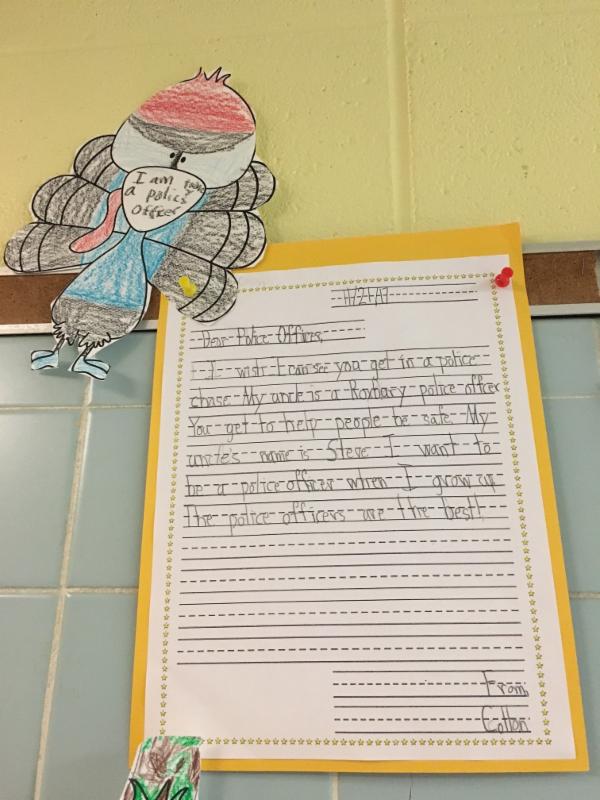 I am
a police
Officer
Dear Police Officer,
I wish I can see you get in a police
chase. My uncle is a Roxbury police officer
You get to help people be safe. My
uncle's name is Steve. I want to
be a police officer when I grow up
The police officers are the best!
From,
Colton